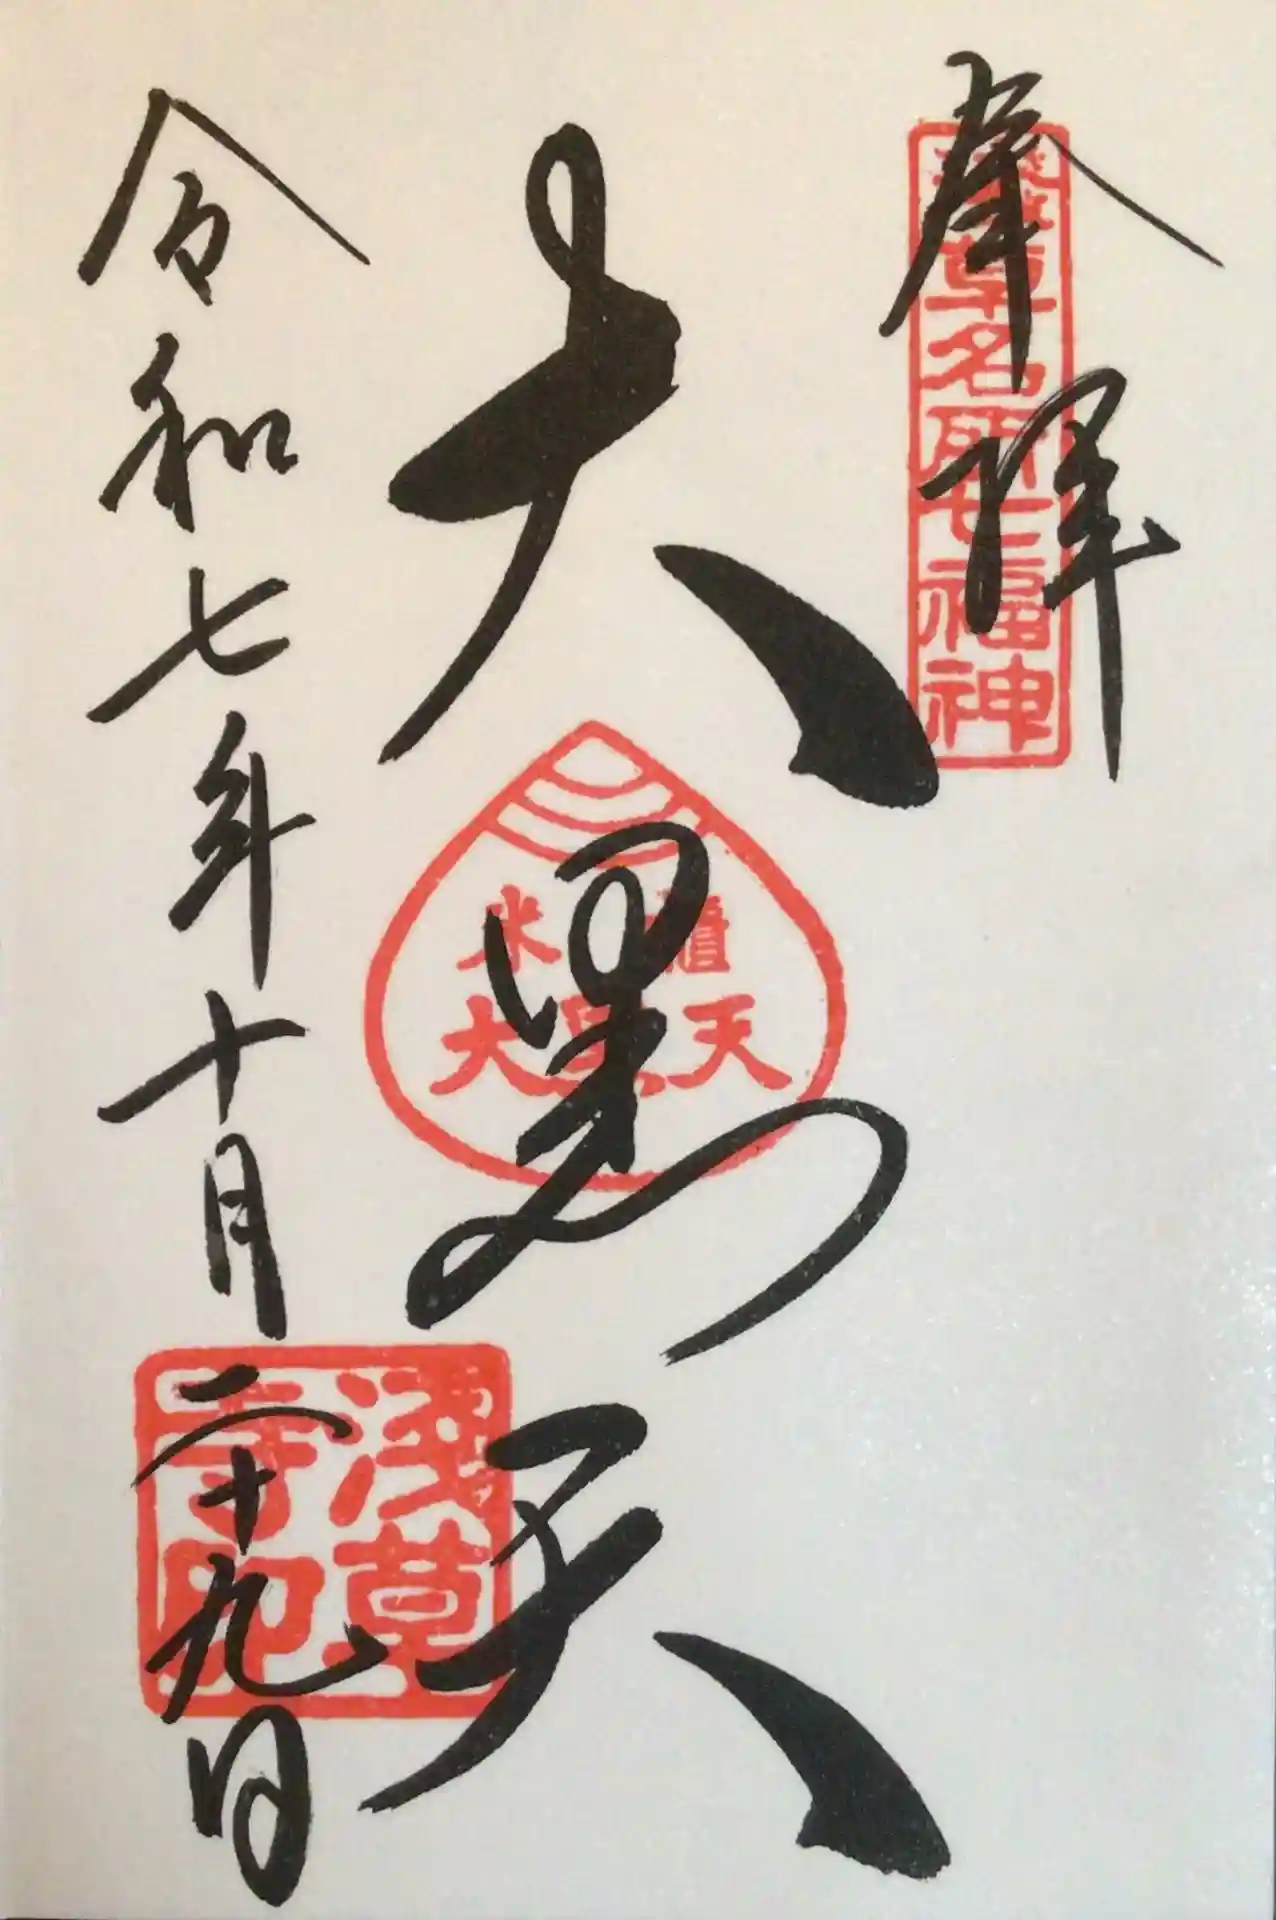 奉拝
浅草名所七福神
大黒天
米櫃
大黒天
令和七年十月二十九日
浅草
寺印